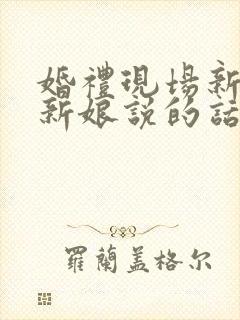 婚禮現場新
新娘説的話
羅蘭蓋格尔